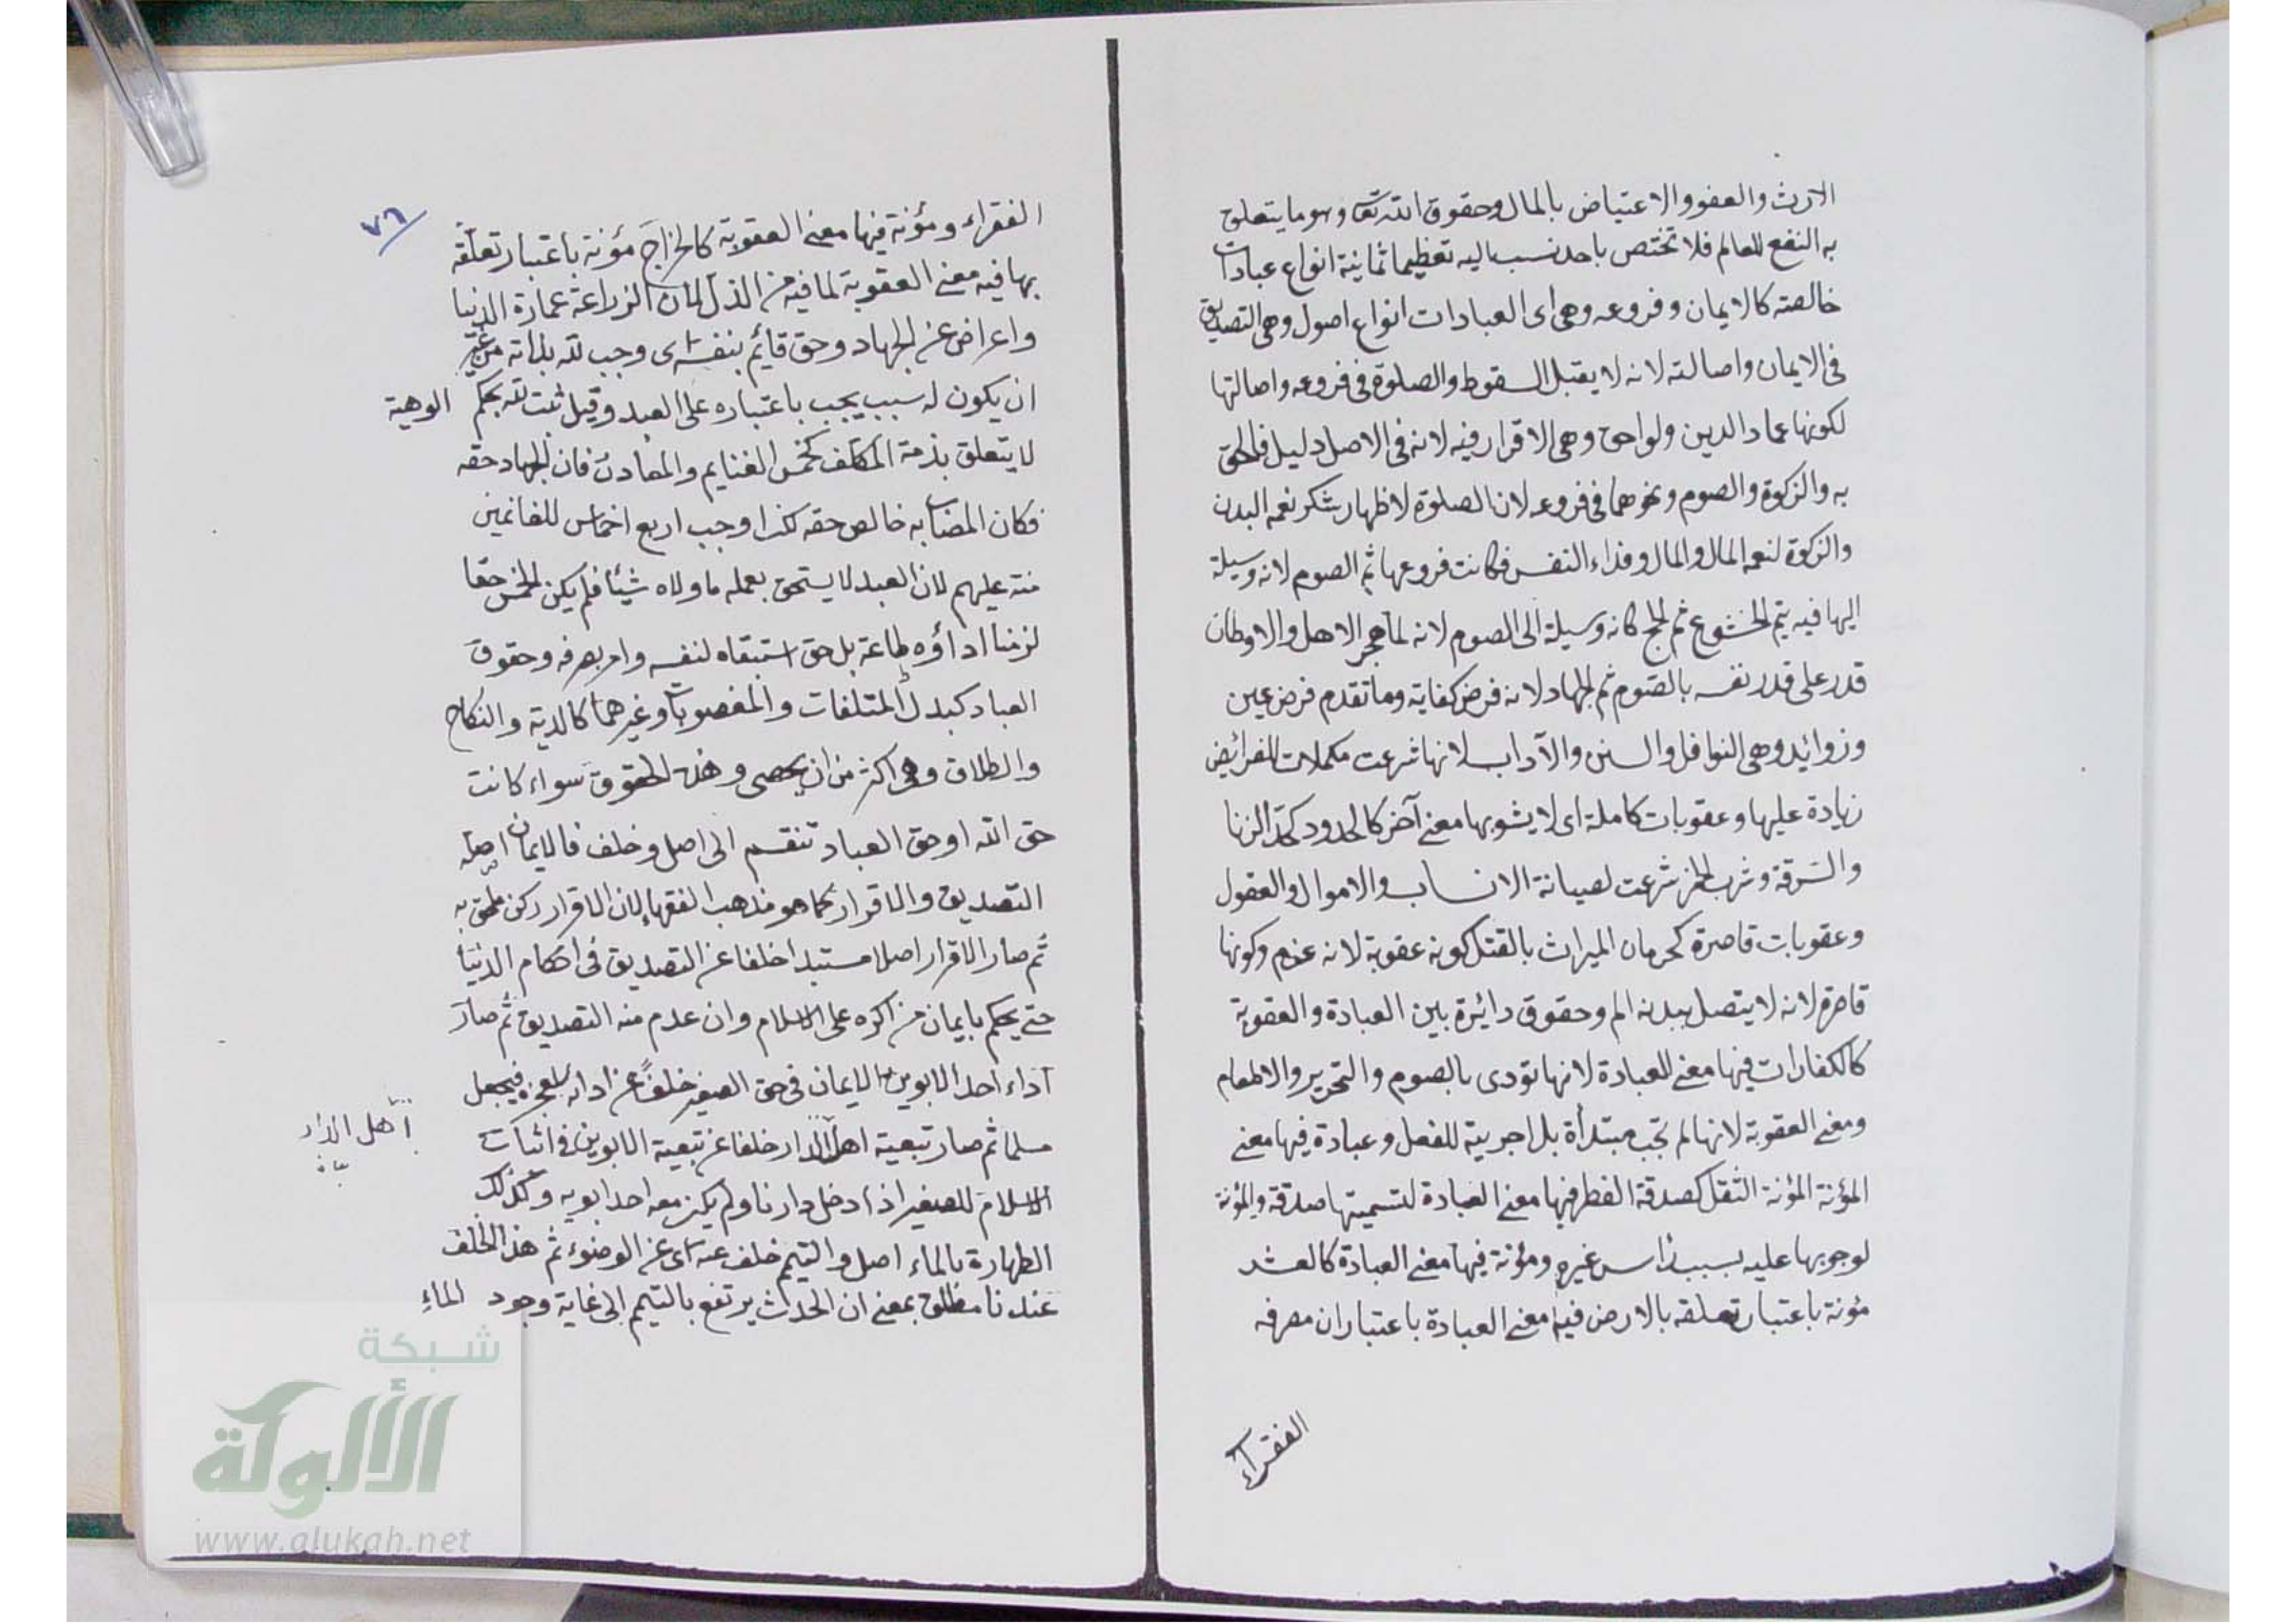 الارث والعفو والاعتياض بالمال وحقوق الله تعا وهو ما يتعلق
به النفع للعالم فلا تختص باحد نسب اليه تعظيما ثمانية انواع عبادات
خالصته كالايمان وفروعه وهى اى العبادات انواع اصول وهى التصديق
فى الايمان واصالته لانه لا يقبل السقوط والصلوة فى فروعه واصالتها
لكونها عماد الدين ولواحق وهى الاقرار فيه لانه فى الاصل دليل فالحق
به والزكوة والصوم ونحوهما فى فروعه لان الصلوة لاظهار شكر نعمه البدن
والزكوة لنعمه المال والمال وفداء النفس فكانت فروعها ثم الصوم لانه وسيلة
اليها فيه يتم الخشوع ثم الحج كانه وسيلة الى الصوم لانه لما هجر الاهل والاوطان
قدر على قدر نفسه بالصوم ثم الجهاد لانه فرض كفاية وما تقدم فرض عين
وزوائد وهى النوافل والسنن والآداب لانها شرعت مكملات للفرائض
زيادة عليها وعقوبات كاملة اى لا يشوبها معنى آخر كالحدود كحدّ الزنا
والسّرقة وشرب الخمر شرعت لصيانة الانساب والاموال والعقول
وعقوبات قاصرة كحرمان الميراث بالقتل كونه عقوبة لانه غرم وكونها
قاصرة لانه لا يتصل ببدنه الم وحقوق دائرة بين العبادة والعقوبة
كالكفارات فيها معنى للعبادة لانها تؤدى بالصوم والتحرير والاطعام
ومعنى العقوبة لانها لم تجب مبتدأة بل اجريية للفعل وعبادة فيها معنى
المؤنة المؤنة الثقل كصدقة الفطر فيها معنى العبادة لتسميتها صدقة والمؤنة
لوجوبها عليه بسبب رأس غيره ومؤنة فيها معنى العبادة كالعشر
مؤنة باعتبار تعلقه بالارض فيه معنى العبادة باعتبار ان مصرفه
الفقراء
٧٦
الفقراء ومؤنة فيها معنى العقوبة كالخراج مؤنة باعتبار تعلقه
بها فيه معنى العقوبة لما فيه من الذل لان الزراعة عمارة الدنيا
واعراض عن الجهاد وحق قائم بنفسه اى وجب لله بذاته من غير
ان يكون له سبب يجب باعتباره على العبد وقيل ثبت لله بحكم الوهية
لا يتعلق بذمة المكلف كخمس الغنايم والمعادن فان الجهاد حقه
فكان المصاب به خالص حقه لكن اوجب اربع اخماس للغانمين
منة عليهم لان العبد لا يستحق بعمله مولاه شيئا فلم يكن الخمس حقا
لزمنا اداؤه طاعة بل حق استبقاه لنفسه وامر بصرفه وحقوق
العباد كبدل المتلفات والمغصوبات وغيرهما كالدية والنكاح
والطلاق وهى اكثر من ان يحصى وهذه الحقوق سواء كانت
حق الله او حق العباد تنقسم الى اصل وخلف فالايمان اصله
التصديق والاقرار كما هو مذهب الفقهاء لان الاقرار ركن ملحق به
ثم صار الاقرار اصلا مستبدا خلفا عن التصديق فى احكام الدنيا
حتى يحكم بايمان من اكره على الاسلام وان عدم منه التصديق ثم صار
اداء احد الابوين الايمان فى حق الصغير خلفا عن ادائه لعجزه فيجعل
مسلما ثم صار تبعية اهل الدار خلفا عن تبعية الابوين فى اثبات
اهل الدار
الاسلام للصغير اذا دخل دارنا ولم يكن معه احد ابويه وكذلك
الطهارة بالماء اصل والتيمم خلف عنه اى عن الوضوء ثم هذا الخلف
عندنا مطلق بمعنى ان الحدث يرتفع بالتيمم الى غاية وجود الماء
شبكة
الألوكة
www.alukah.net